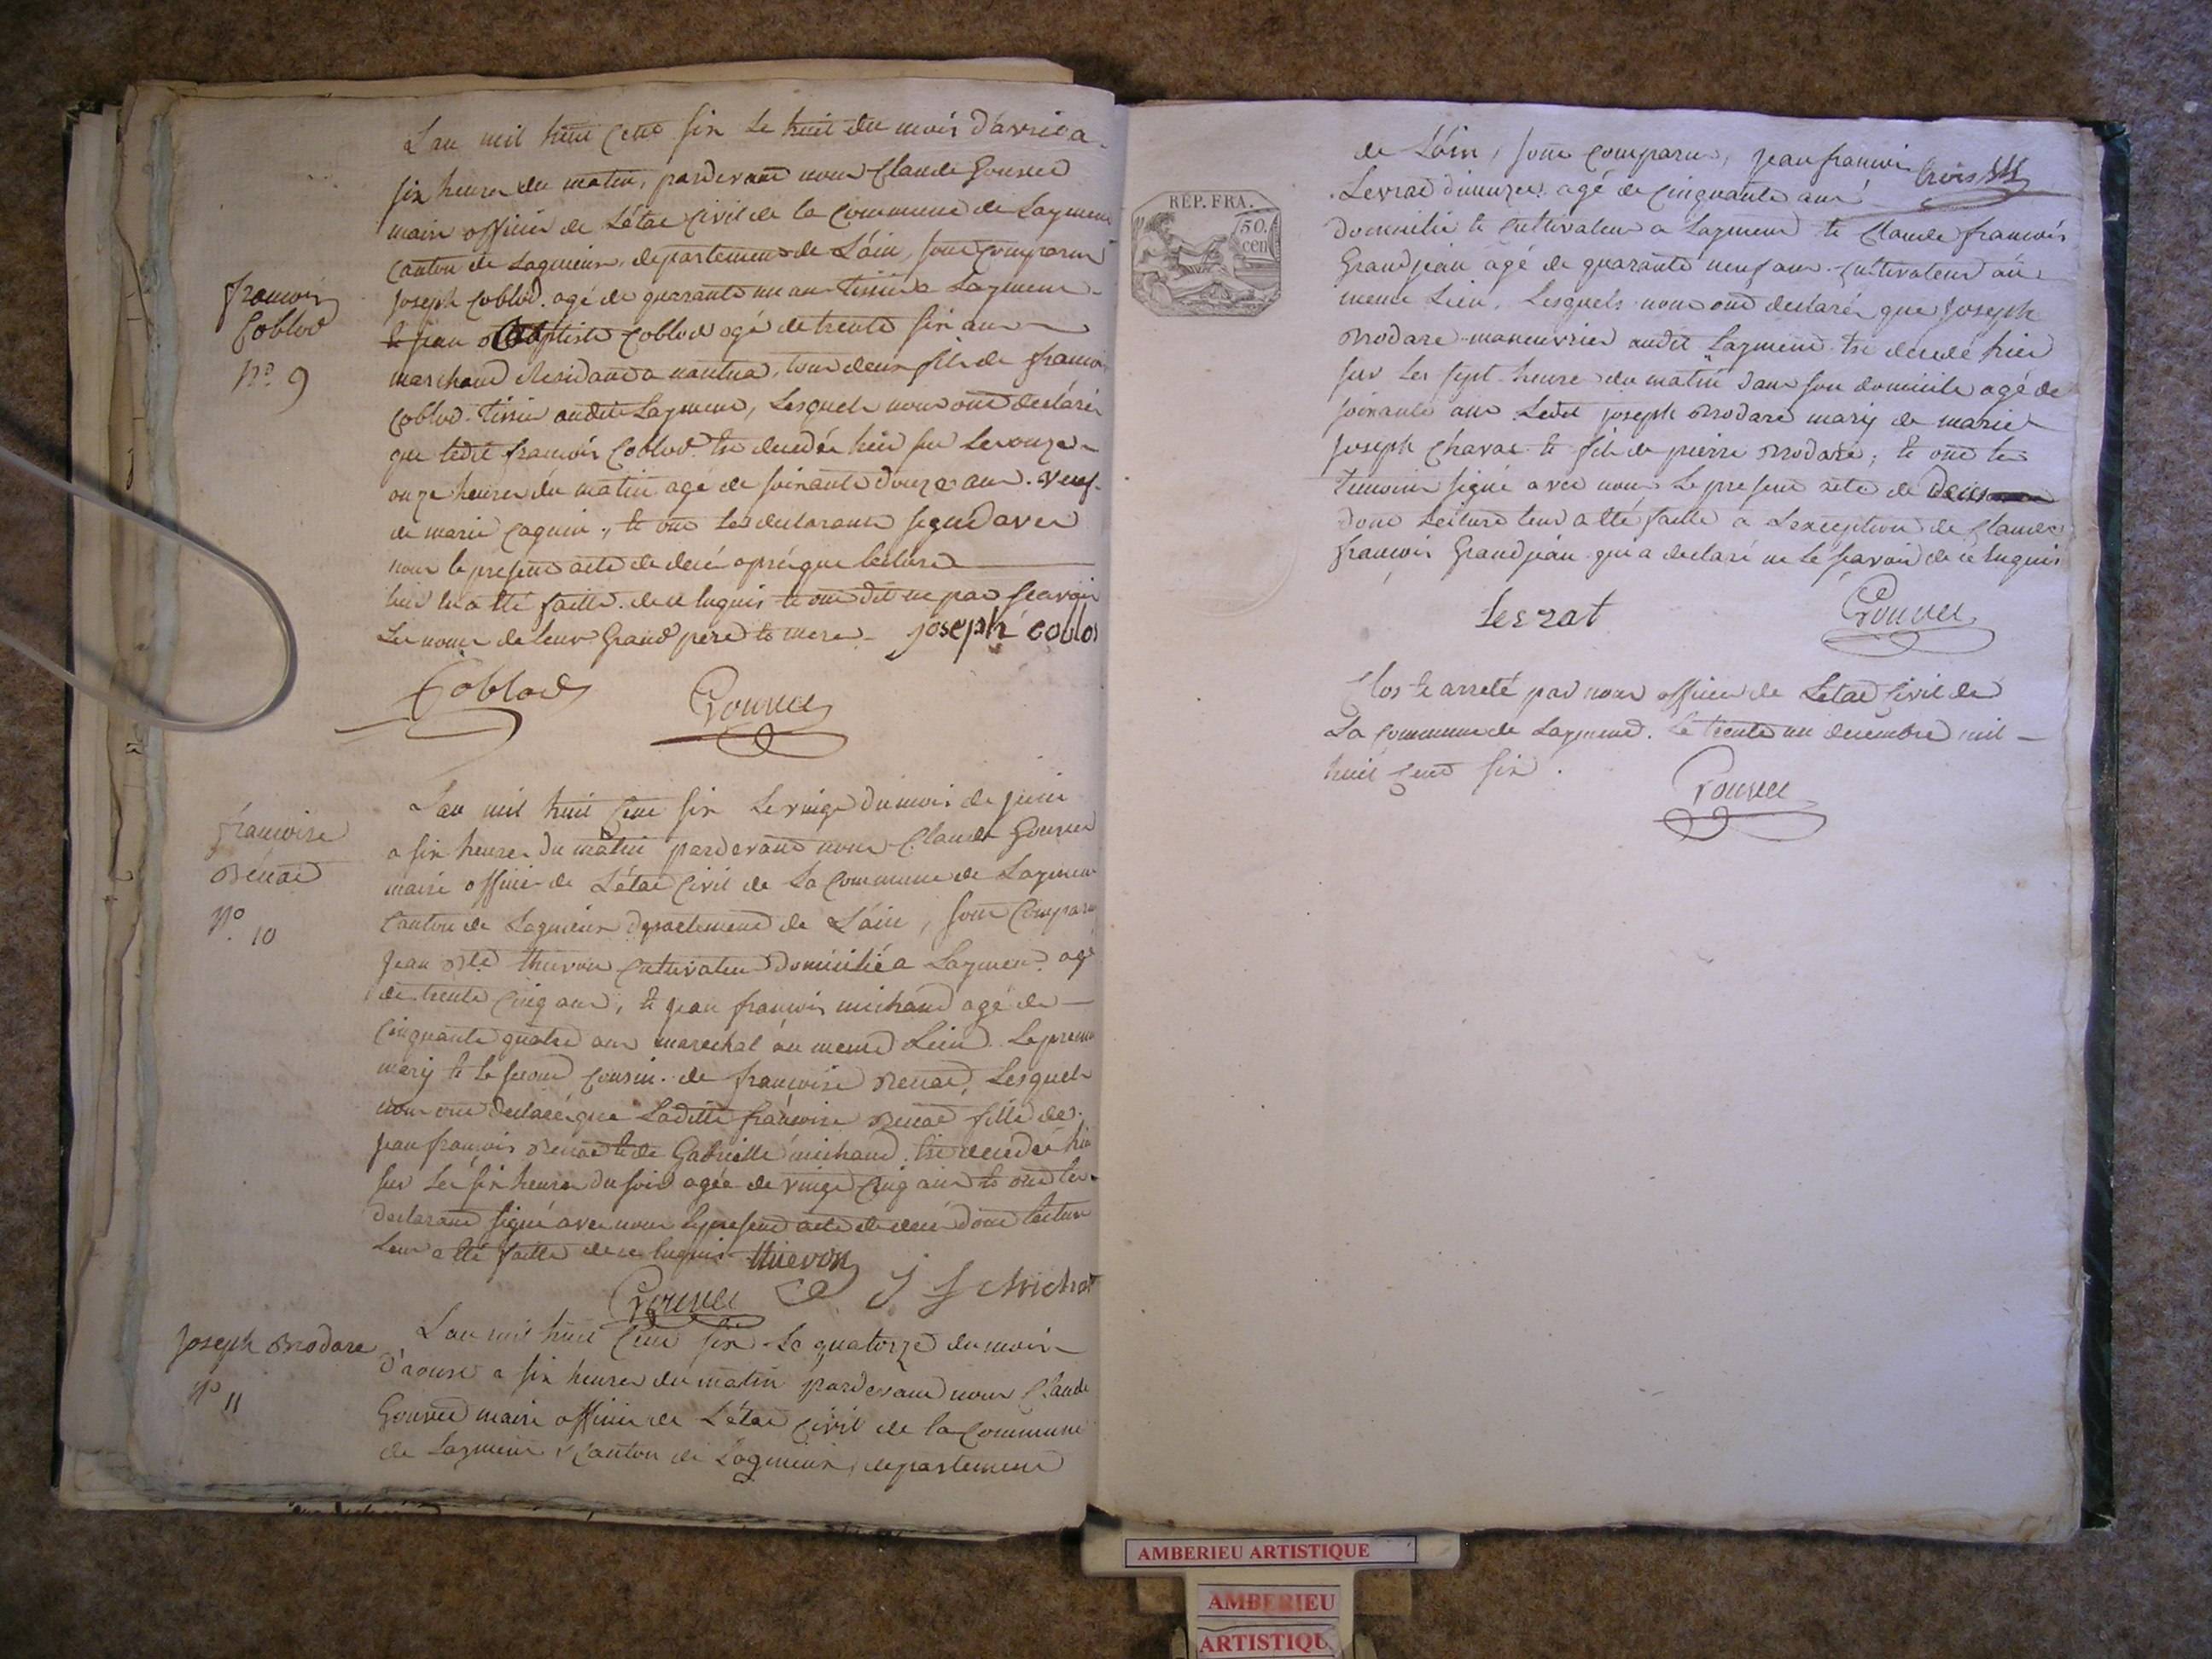 L'an mil huit cent six le huit du mois d'avril a
six heures du matin, pardevant nous Claude Gourvel
maire officier de L'état Civil de la Commune de Laymens
Canton de Lagnieux, departement de L'áin, sont comparus
joseph Coblod. agé de quarante un ans tissier a Laymens
françois
Coblod
N.º 9
et jean Baptiste Coblod agé de trente six ans
marchand Residant a nantua, tous deux fils de françois
Coblod tissier audit Laymens, Lesquels nous ont declaré
que ledit françois Coblod est decedé hier sur les onze
onze heures du matin agé de soixante douze ans. veuf
de marie ; et ont les declarants signé avec
nous le present acte de decé aprés que lecture
leur en a été faitte. de ce Requis et ont dit ne pas scavoir
Les noms de leurs Grand pere et mere joseph coblod
Coblod
françoise
Benad
N.º 10
L'an mil huit Cent six le vingt du mois de juin
a six heures du matin pardevant nous Claude
maire officier de L'état Civil de La Commune de Laymens
Canton de Lagnieux departement de L'áin, sont Comparus
jean Bte thievon Cultivateur Domicilié a Laymens agé
de trente cinq ans, et jean françois michaud agé de
Cinquante quatre ans marechal au meme Lieu. Le premier
mary et le second cousin de françoise Lesquels
nous ont declaré que Laditte françoise fille de
jean françois et de Gabrielle michaud est decedée hier
sur Les six heures du soir agée de vingt Cinq ans et ont les
declarans signé avec nous le present acte de decé dont lecture
Leur a été faitte de ce Requis thievon
J f Michat
Joseph Brodare
N.º 11
L'an mil huit Cent six Le quatorze du mois
d'aoust a six heures du matin pardevant nous Claude
maire officier de L'état Civil de la Commune
de Laymens Canton de Lagnieux, departement
RÉP. FRA.
50.
cen
de L'áin, sont comparus, jean françois
Levrat agé de Cinquante ans
Domicilié et Cultivateur a Laymens et Claude françois
Grandjean agé de quarante neuf ans Cultivateur au
meme Lieu, Lesquels nous ont declaré que joseph
Brodare manouvrier audit Laymens est decedé hier
sur Les sept heures du matin dans son domicile agé de
soixante ans Ledit joseph Brodare mary de marie
joseph Chavat et fils de pierre Brodare, et ont les
temoins signé avec nous Le present acte de Deces
dont Lecture leur a été faitte a L'exception de Claude
françois Grandjean qui a declaré ne Le scavoir de ce Requis
levrat
Clos et arreté par nous officier de L'etat Civil de
La Commune de Laymens. Le trente un decembre mil
huit Cent six.
AMBERIEU ARTISTIQUE
AMBERIEU
ARTISTIQU